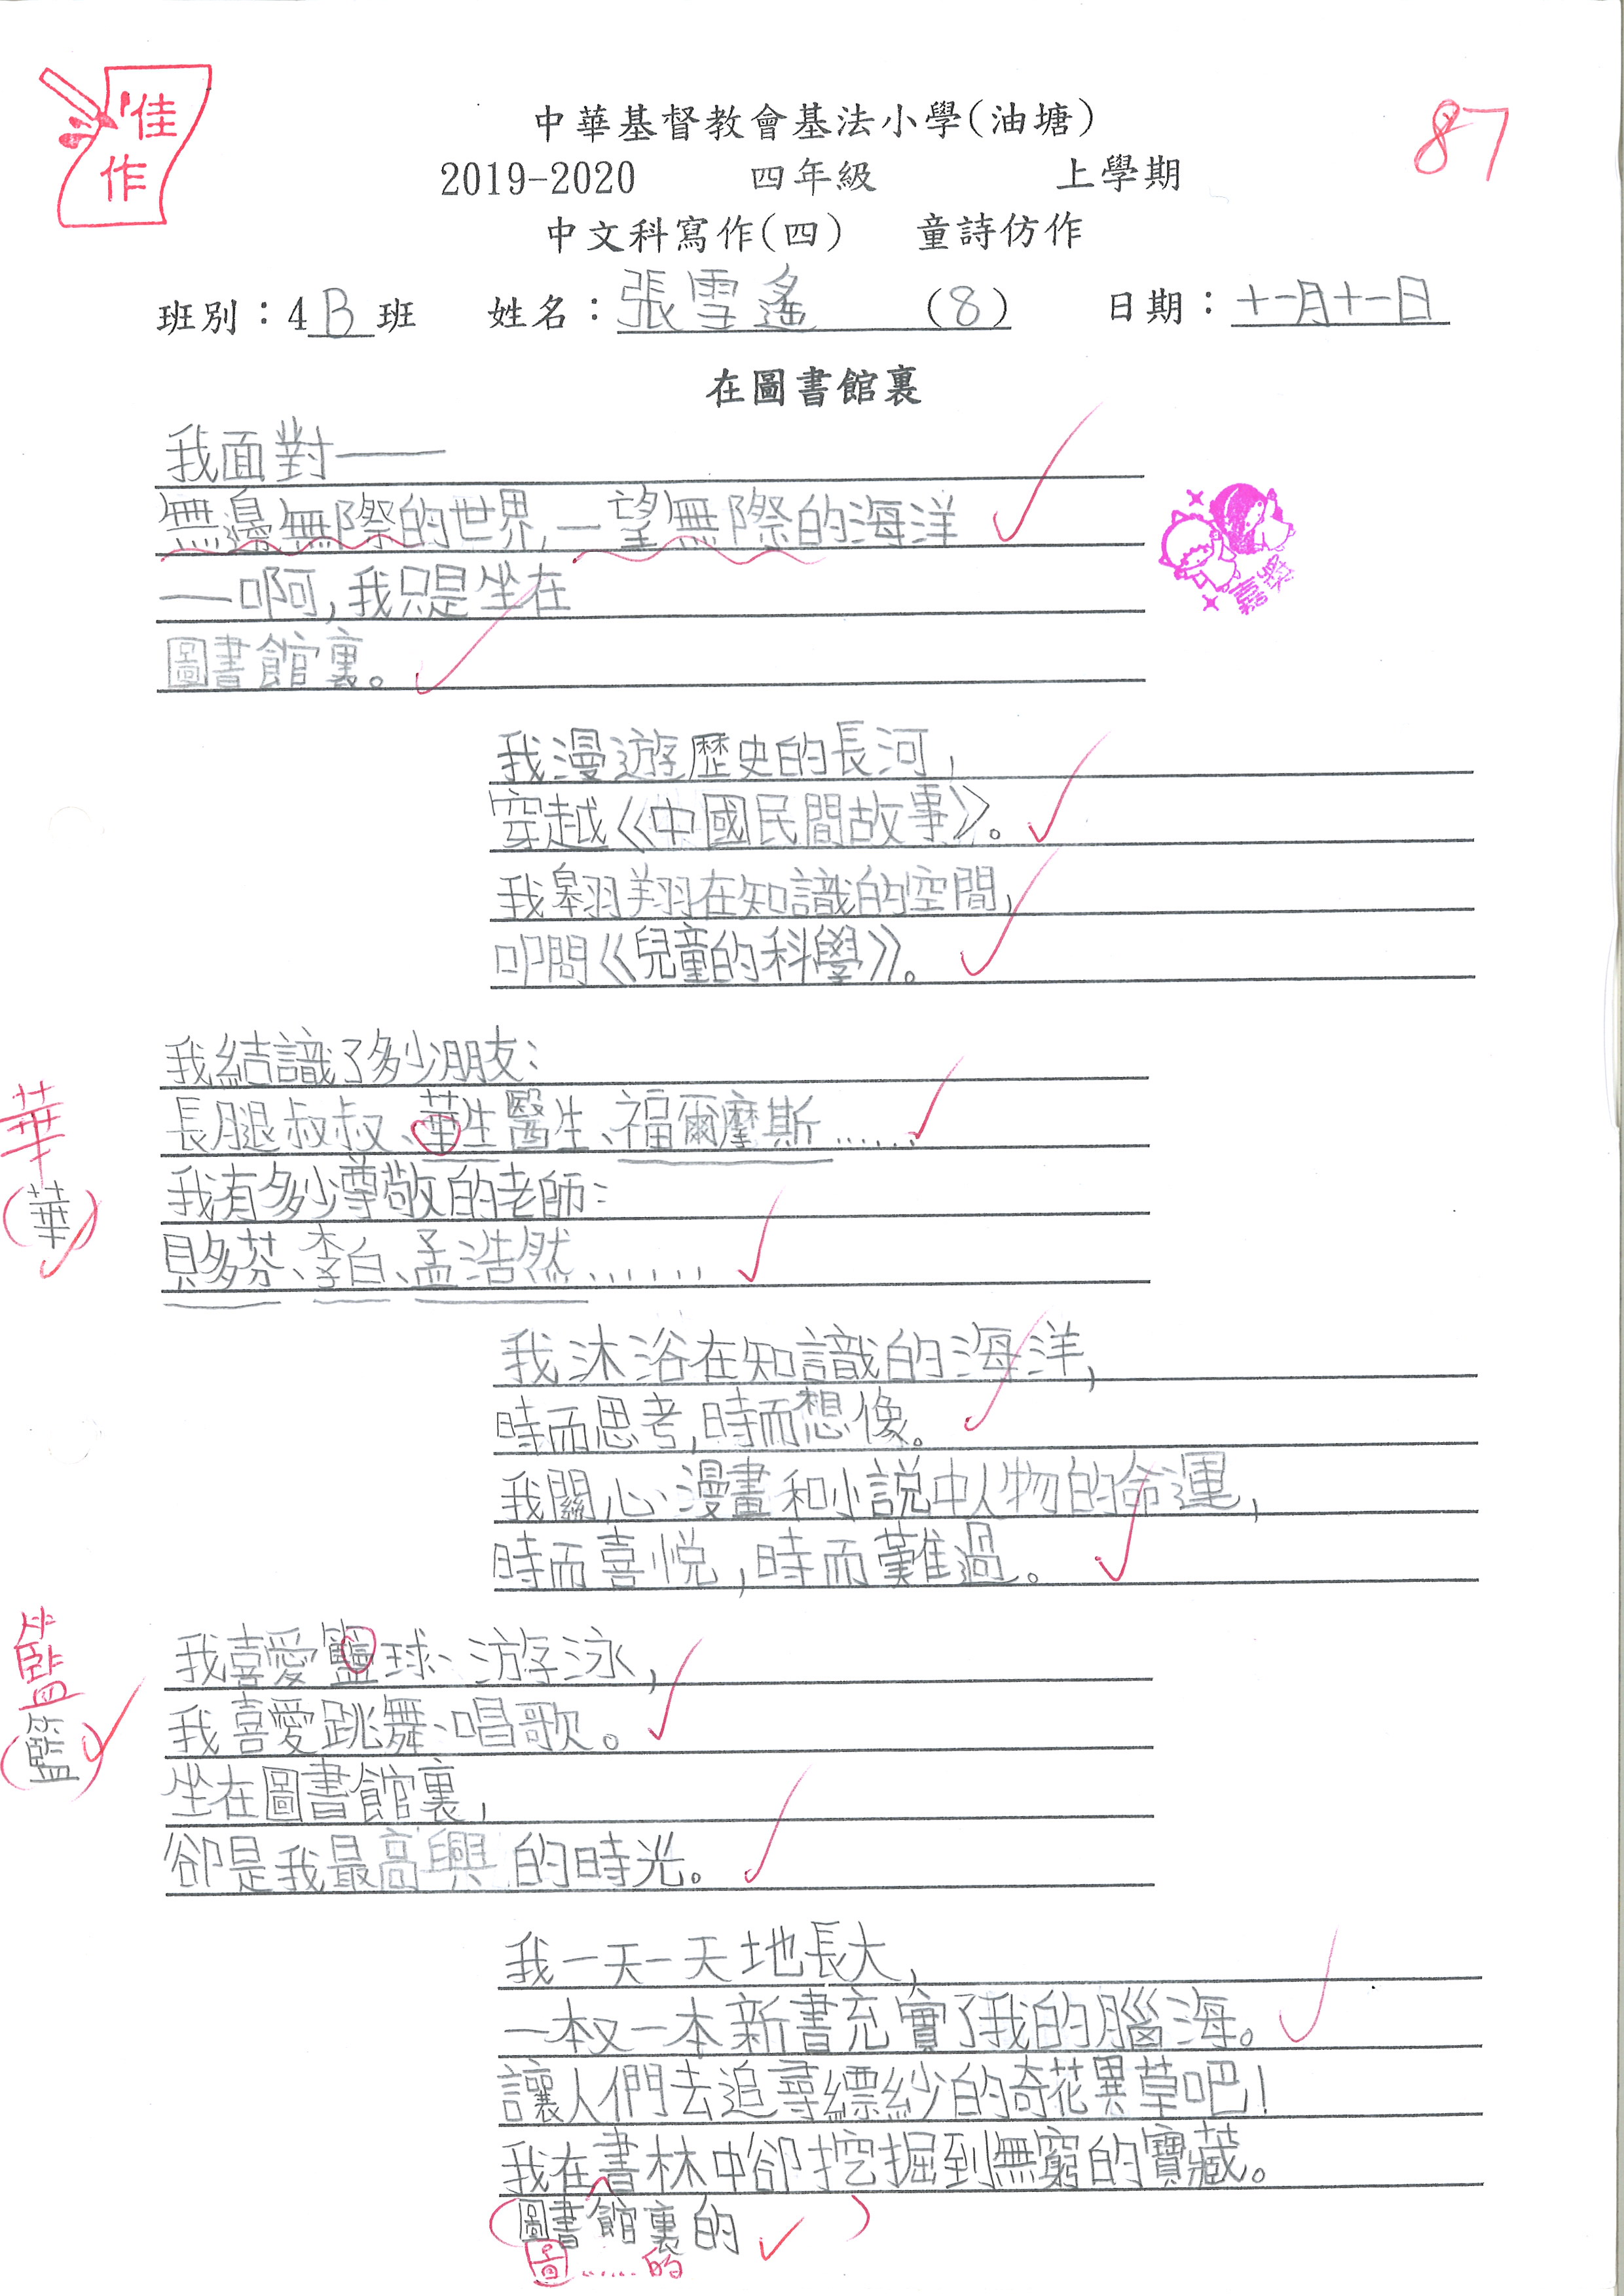 佳
作
中華基督教會基法小學(油塘)
87
2019-2020 四年級 上學期
中文科寫作(四) 童詩仿作
班別：4B班 姓名：張雪遙 (8) 日期：十一月十一日
在圖書館裏
我面對——
無邊無際的世界,一望無際的海洋
—啊,我只是坐在
圖書館裏。
嘉獎
我漫遊歷史的長河,
穿越《中國民間故事》。
我翱翔在知識的空間,
叩問《兒童的科學》。
我結識了多少朋友：
長腿叔叔、華生醫生、福爾摩斯……
華
我有多少尊敬的老師：
(華)
貝多芬、李白、孟浩然……
我沐浴在知識的海洋,
時而思考,時而想像。
我關心漫畫和小說中人物的命運,
時而喜悅,時而難過。
籃
我喜愛籃球、游泳,
我喜愛跳舞、唱歌。
(籃)
坐在圖書館裏,
卻是我最高興的時光。
我一天一天地長大,
一本又一本新書充實了我的腦海。
讓人們去追尋縹緲的奇花異草吧!
我在書林中卻挖掘到無窮的寶藏。
(圖書館裏的)
圖……的